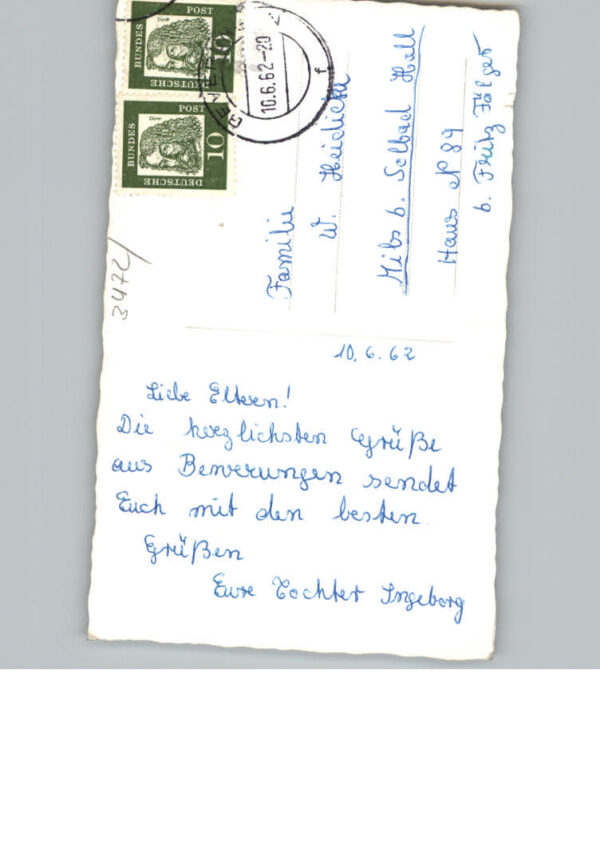 BUNDES POST
Dürer
10
DEUTSCHE
BUNDES POST
Dürer
10
DEUTSCHE
BEVER
10.6.62-20
f
3472/
Familie
W. Heidicke
Mils b. Solbad Hall
Haus № 89
b. Fritz Fölger
10.6.62
Liebe Eltern!
Die herzlichsten Grüße
aus Beverungen sendet
Euch mit den besten
Grüßen
Eure Tochter Ingeborg